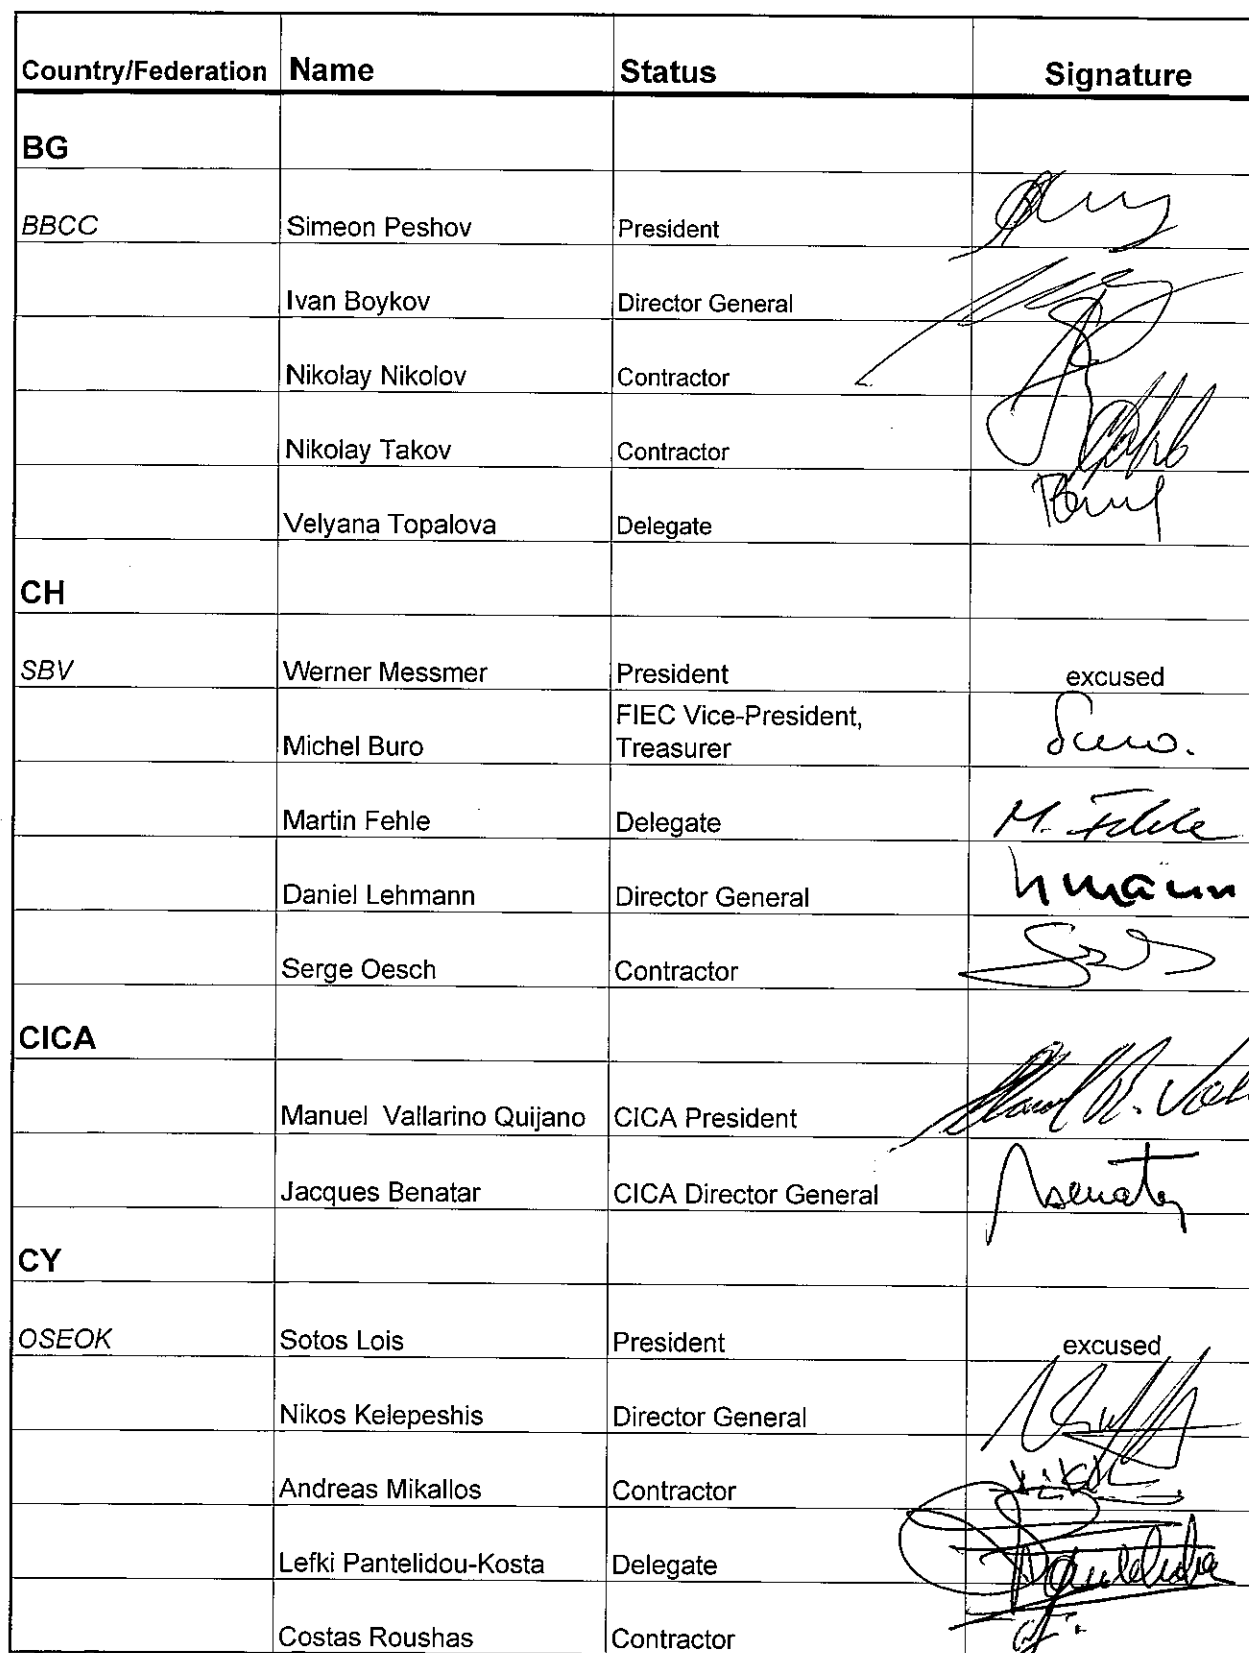 Country/Federation Name Status Signature
BG
BBCC Simeon Peshov President
Ivan Boykov Director General
Nikolay Nikolov Contractor
Nikolay Takov Contractor
Velyana Topalova Delegate
CH
SBV Werner Messmer President excused
FIEC Vice-President,
Michel Buro Treasurer
Martin Fehle Delegate M. Fehle
Daniel Lehmann Director General
Serge Oesch Contractor
CICA
Manuel Vallarino Quijano CICA President
Jacques Benatar CICA Director General Benatar
CY
OSEOK Sotos Lois President excused
Nikos Kelepeshis Director General
Andreas Mikallos Contractor
Lefki Pantelidou-Kosta Delegate
Costas Roushas Contractor